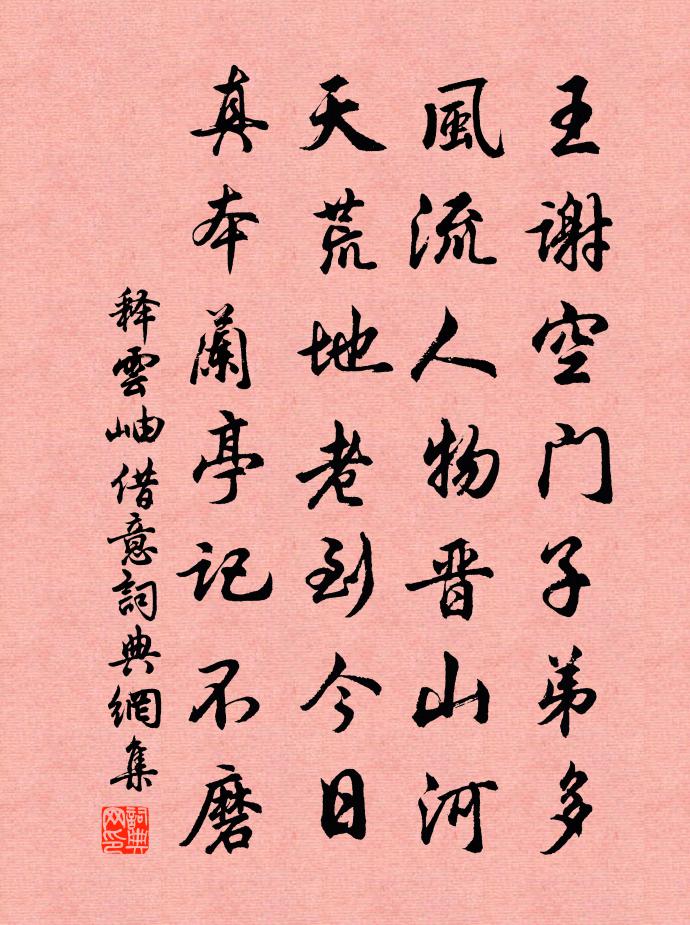 王謝空门子弟多
風流人物晋山河
天荒地老到今日
真本蘭亭記不磨
释雲岫借意詞典網集
詞典网印